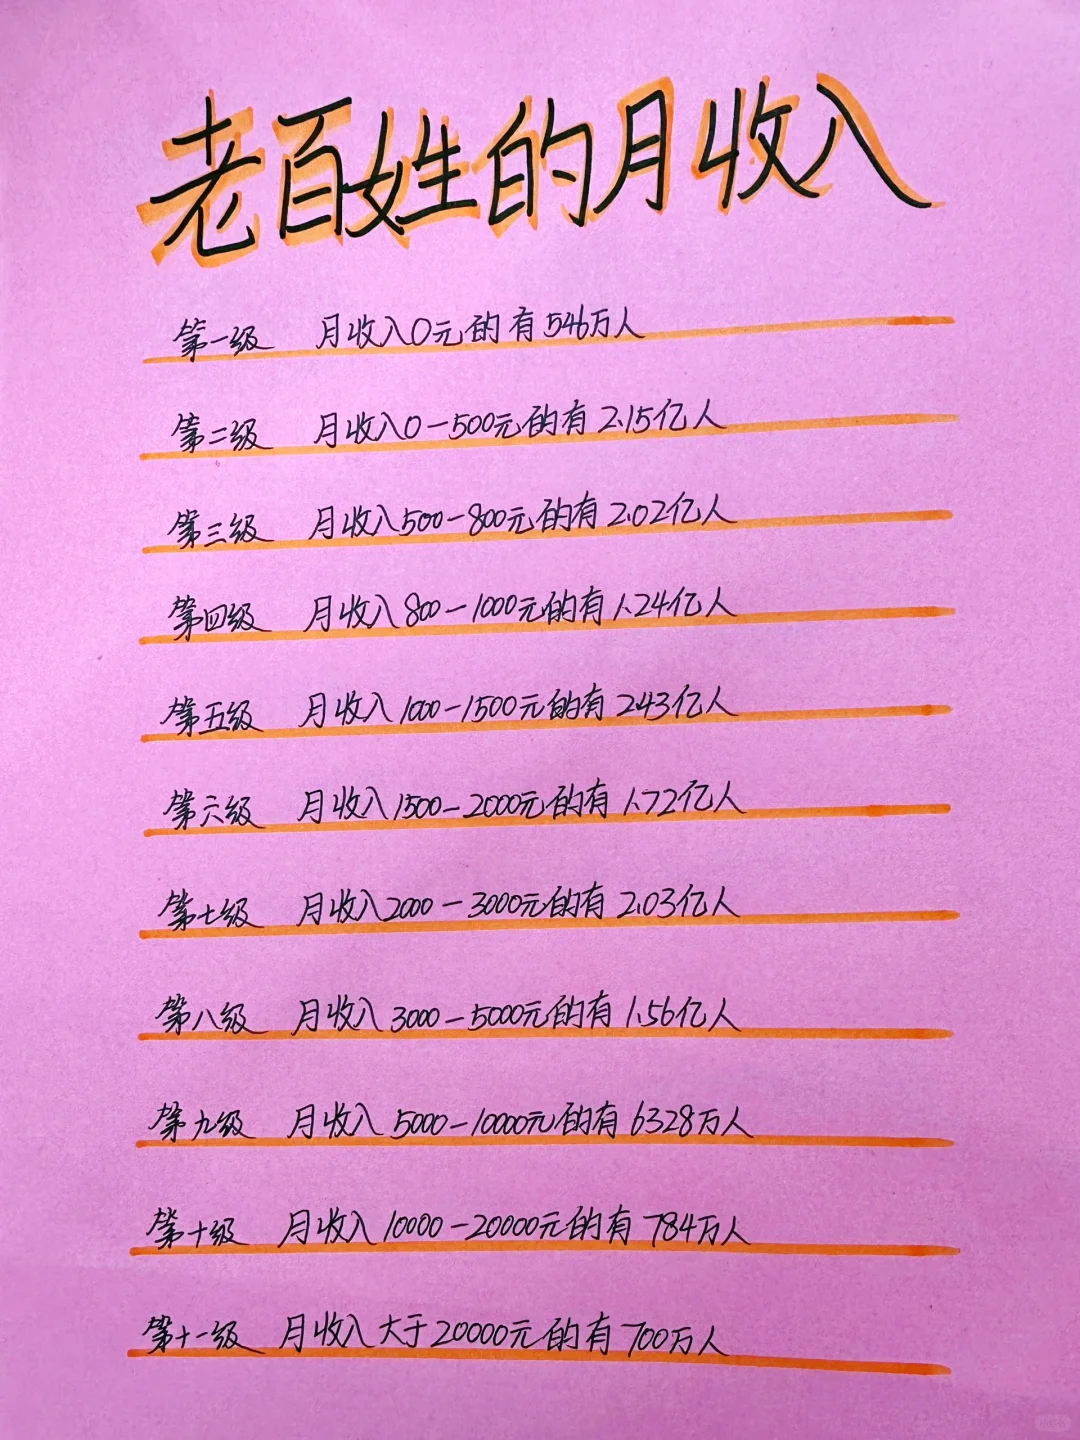 老百姓的月收入
第一级 月收入0元的有546万人
第二级 月收入0-500元的有2.15亿人
第三级 月收入500-800元的有2.02亿人
第四级 月收入800-1000元的有1.24亿人
第五级 月收入1000-1500元的有2.43亿人
第六级 月收入1500-2000元的有1.72亿人
第七级 月收入2000-3000元的有2.03亿人
第八级 月收入3000-5000元的有1.56亿人
第九级 月收入5000-10000元的有6328万人
第十级 月收入10000-20000元的有784万人
第十一级 月收入大于20000元的有700万人